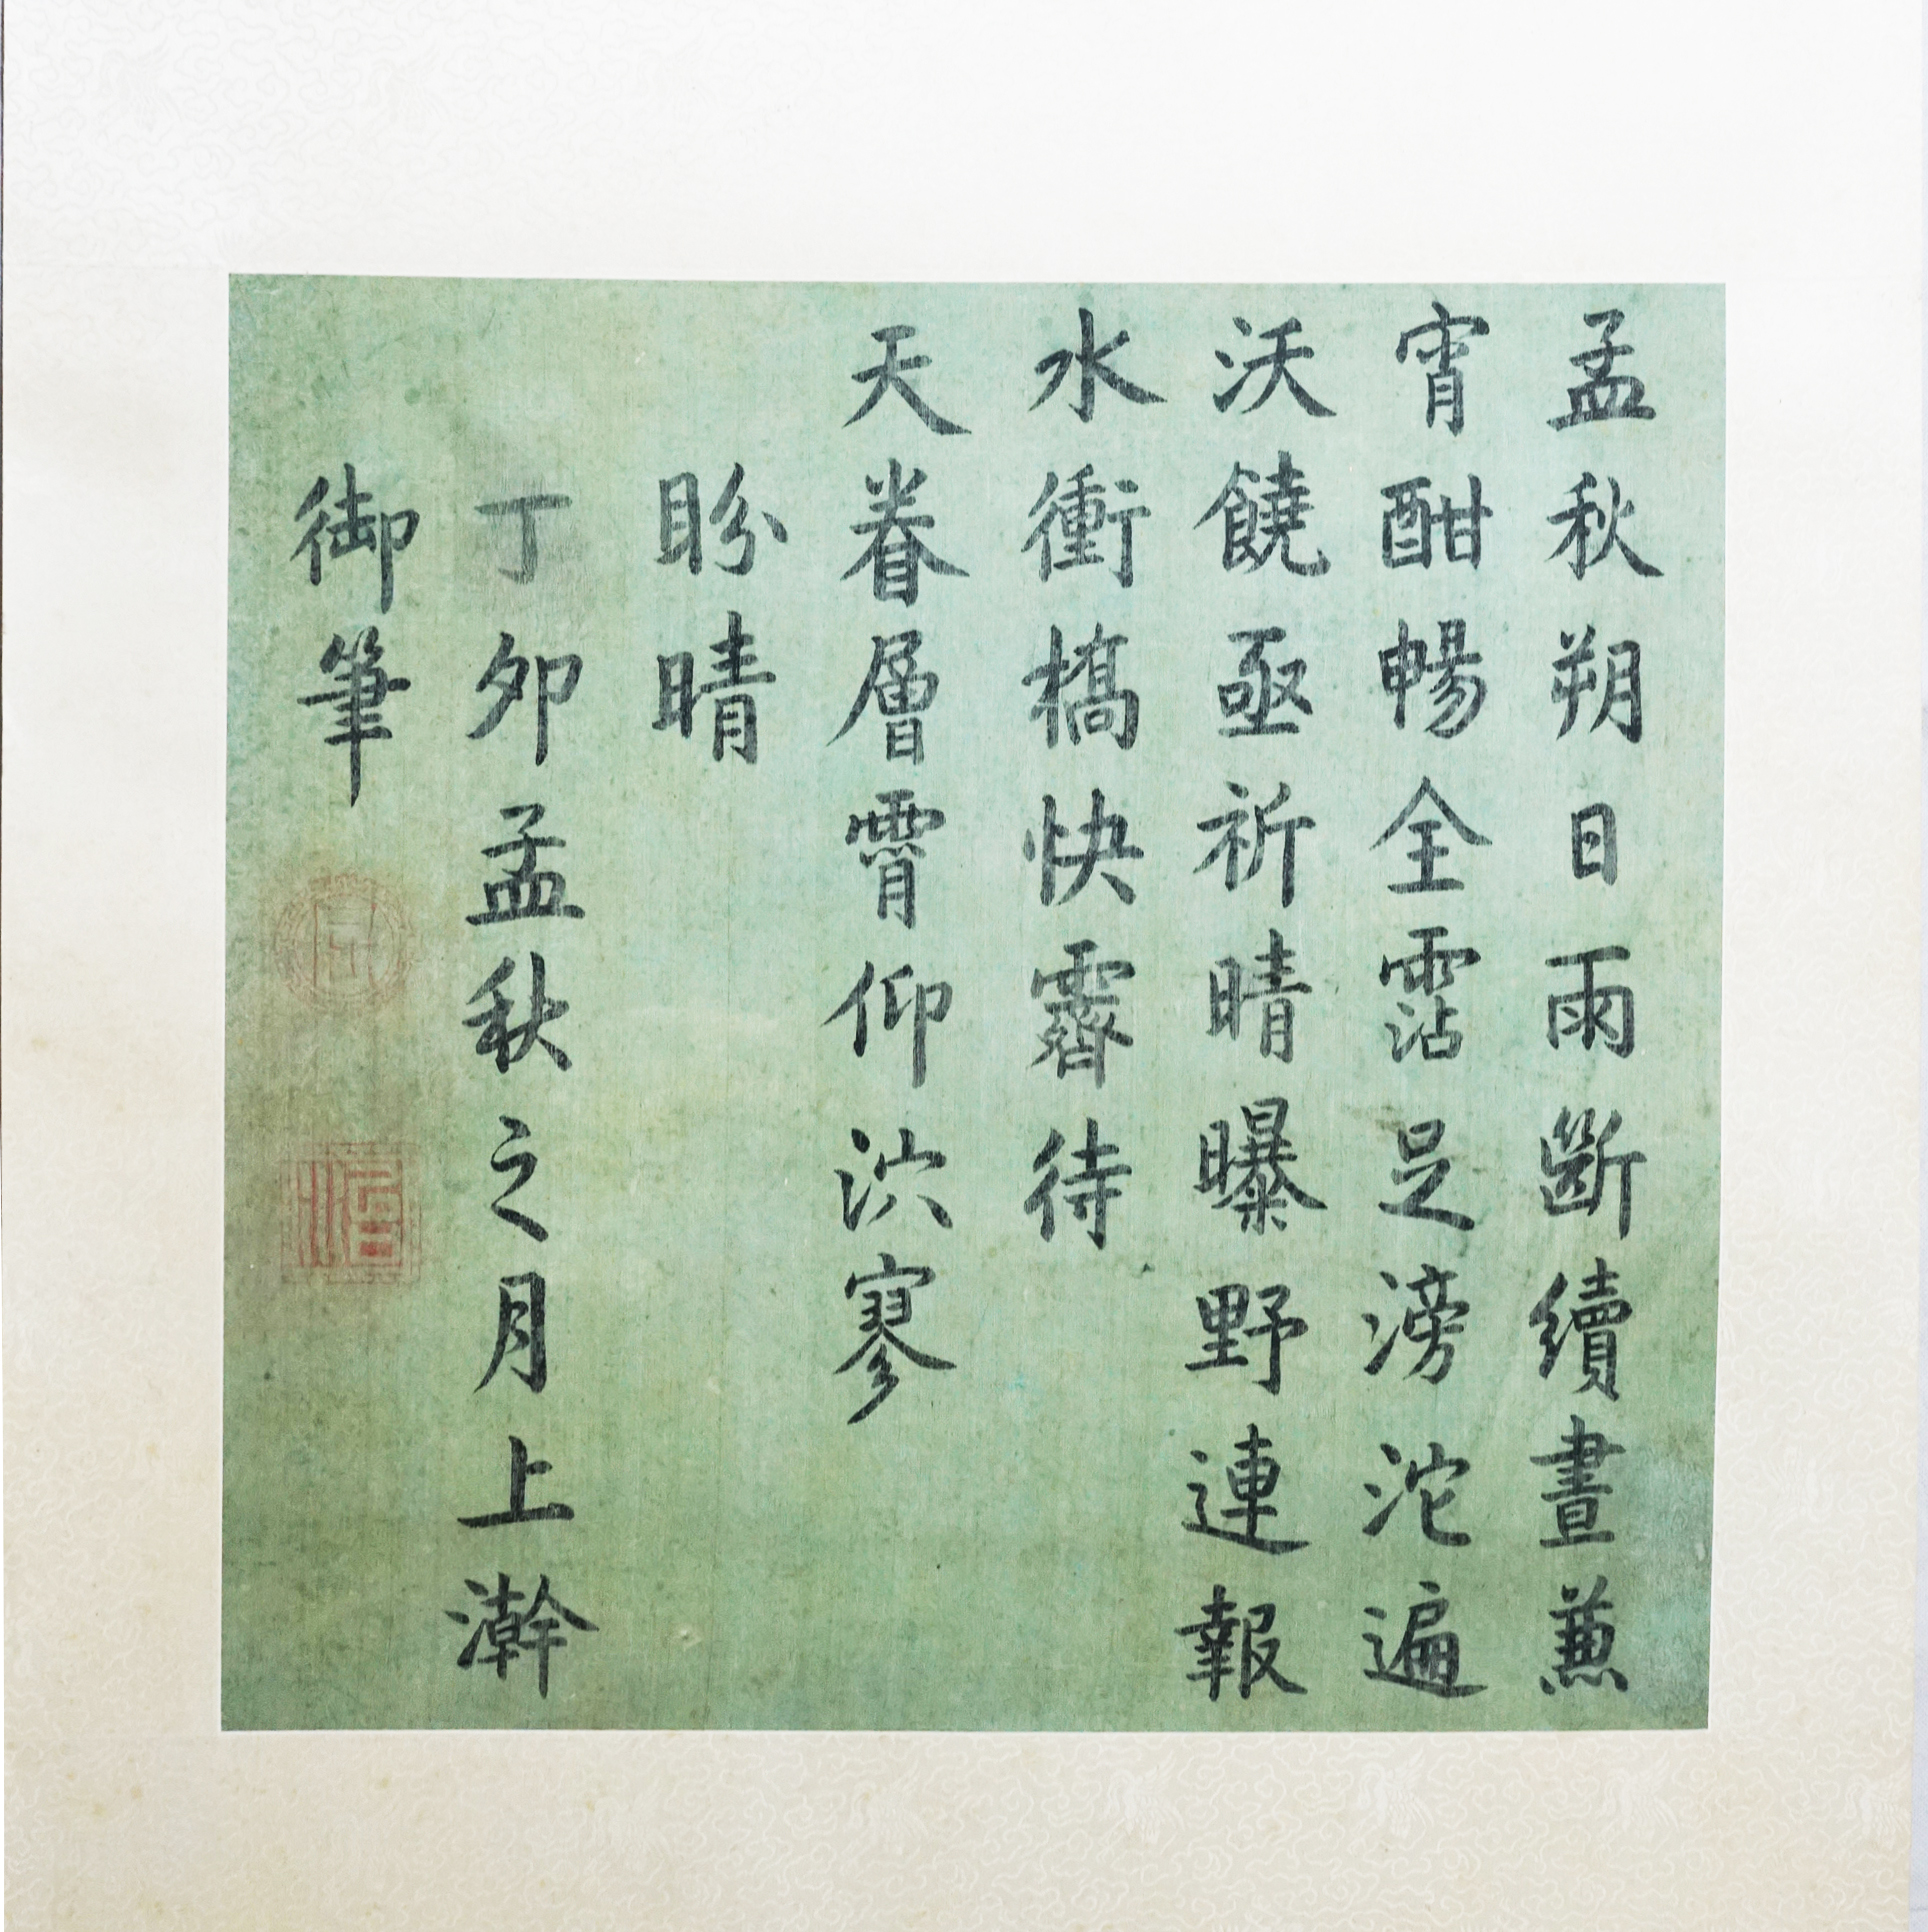 孟秋朔日雨斷續晝蒹
宵酣暢全霑足滂沱遍
沃饒亟祈晴曝野連報
水衝槁快霽待
天眷層霄仰泬寥
盼晴
丁卯孟秋之月上澣
御筆